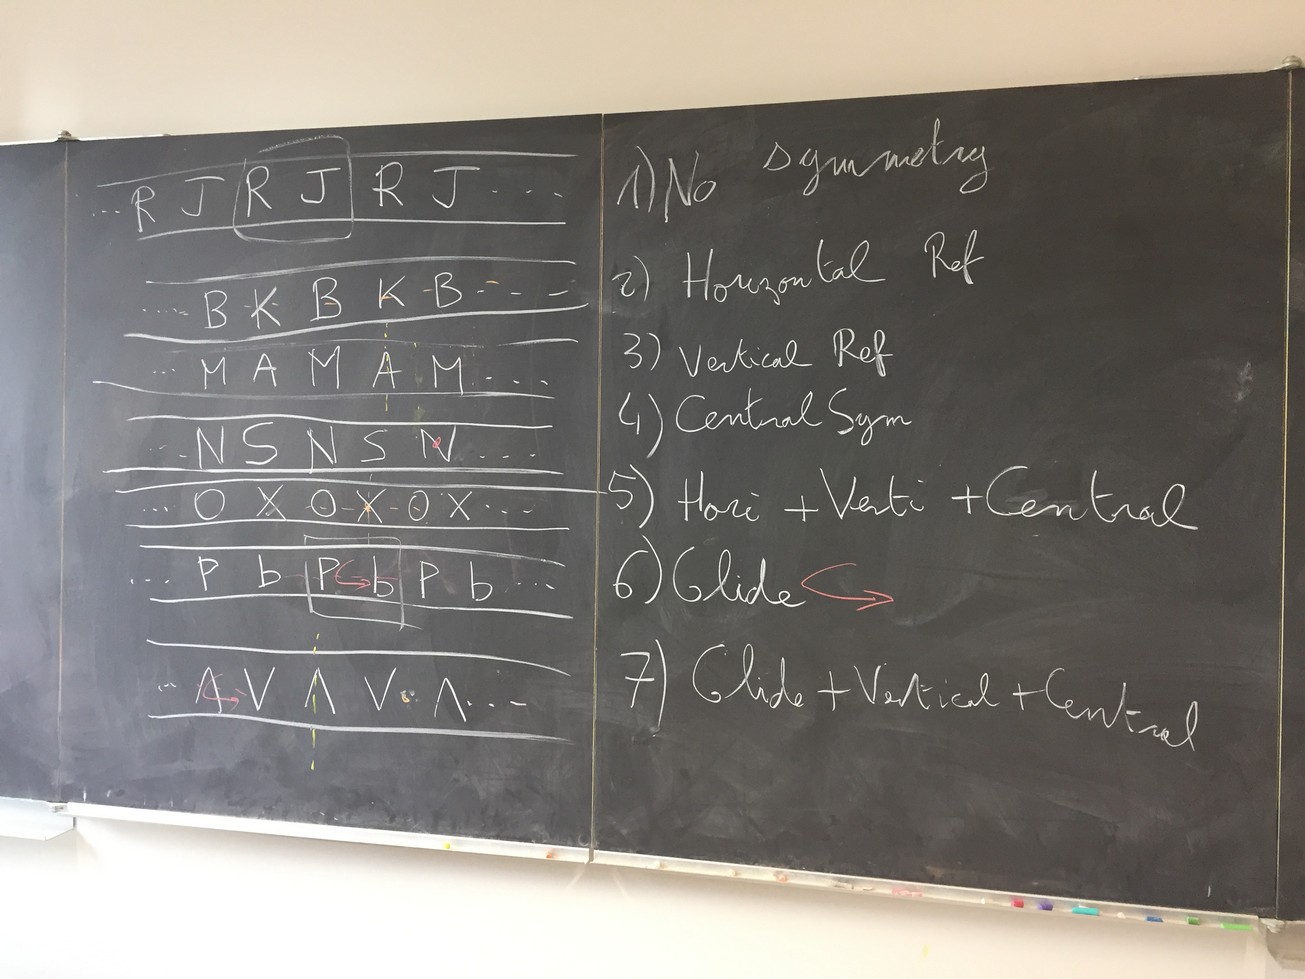 ... R J R J R J ....
..... B K B K B - - - -
... M A M A M ....
... N S N S N ....
... O X O X O X ...
.... P b P b P b ...
... Λ V Λ V Λ ...
1) No symmetry
2) Horizontal Ref
3) Vertical Ref
4) Central Sym
5) Hori + Verti + Central
6) Glide
7) Glide + Vertical + Central